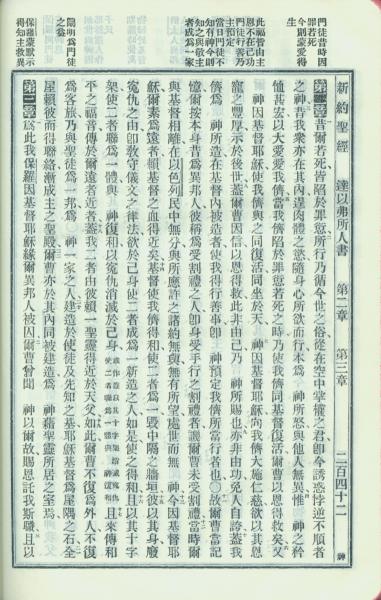 新約聖經 達以弗所人書 第二章 第三章 二百四十二 神
門徒昔時因
罪若死
今則蒙愛得
生
此福皆由主
恩不在己功
使徒行善乃
主預定
當日門徒不
知有神今則
知之與敬主
者成爲一家
闡明爲門徒
之益
保羅蒙默示
得知主救異
第二章 昔爾若死皆陷於罪愆所行乃循今世之俗從在空中掌權之君卽今誘惑悖逆不順者
之神昔我衆亦在其內逞肉體之慾隨身心所欲而行本爲 神所怒與他人無異惟 神之矜
恤甚宏以大愛愛我儕當我儕陷於罪愆若死之時乃使我儕同基督復活爾曹以恩得救矣又
神因基督耶穌使我儕與之同復活同坐於天 神因基督耶穌向我儕大施仁慈欲以其恩
寵之豐厚示於後世蓋爾曹因信以恩得救此非由己乃 神所賜也亦非由功免人自誇蓋我
儕爲 神所造在基督內被造者使我得行善事卽 神預定我儕所當行者也○故爾曹當記
憶爾按本身昔爲異邦人彼稱爲受割禮之人卽身受手行之割禮者譏爾曹未受割禮當時爾
與基督相離在以色列民中無分與所應許之諸約無與無有所望處世而無 神今因基督耶
穌爾素爲遠者賴基督之血得近矣基督使我儕得和使二者爲一毀中隔之牆垣彼以其身廢
寃仇之由卽敎守儀文之律法欲於己身使二者成爲一新造之人如是使之得和且以其十字
架使二者聯爲一體與 神復和以寃仇消滅於己身 或作蓋以其十字架除滅寃仇使二者聯爲一體與神復和 且來傳和
平之福音傳於爾遠者近者蓋我二者由彼賴一聖靈得近於天父如此爾曹不復爲外人不復
爲客旅乃與聖徒爲一邦爲 神一家之人建造於使徒及先知之基耶穌基督爲屋隅之石全
屋賴彼而得聯絡漸成主之聖殿爾曹亦於其內同被建造爲 神藉聖靈所居之室焉
第三章 爲此我保羅因基督耶穌緣爾異邦人被囚爾曹曾聞 神以爾故賜恩託我斯職且以